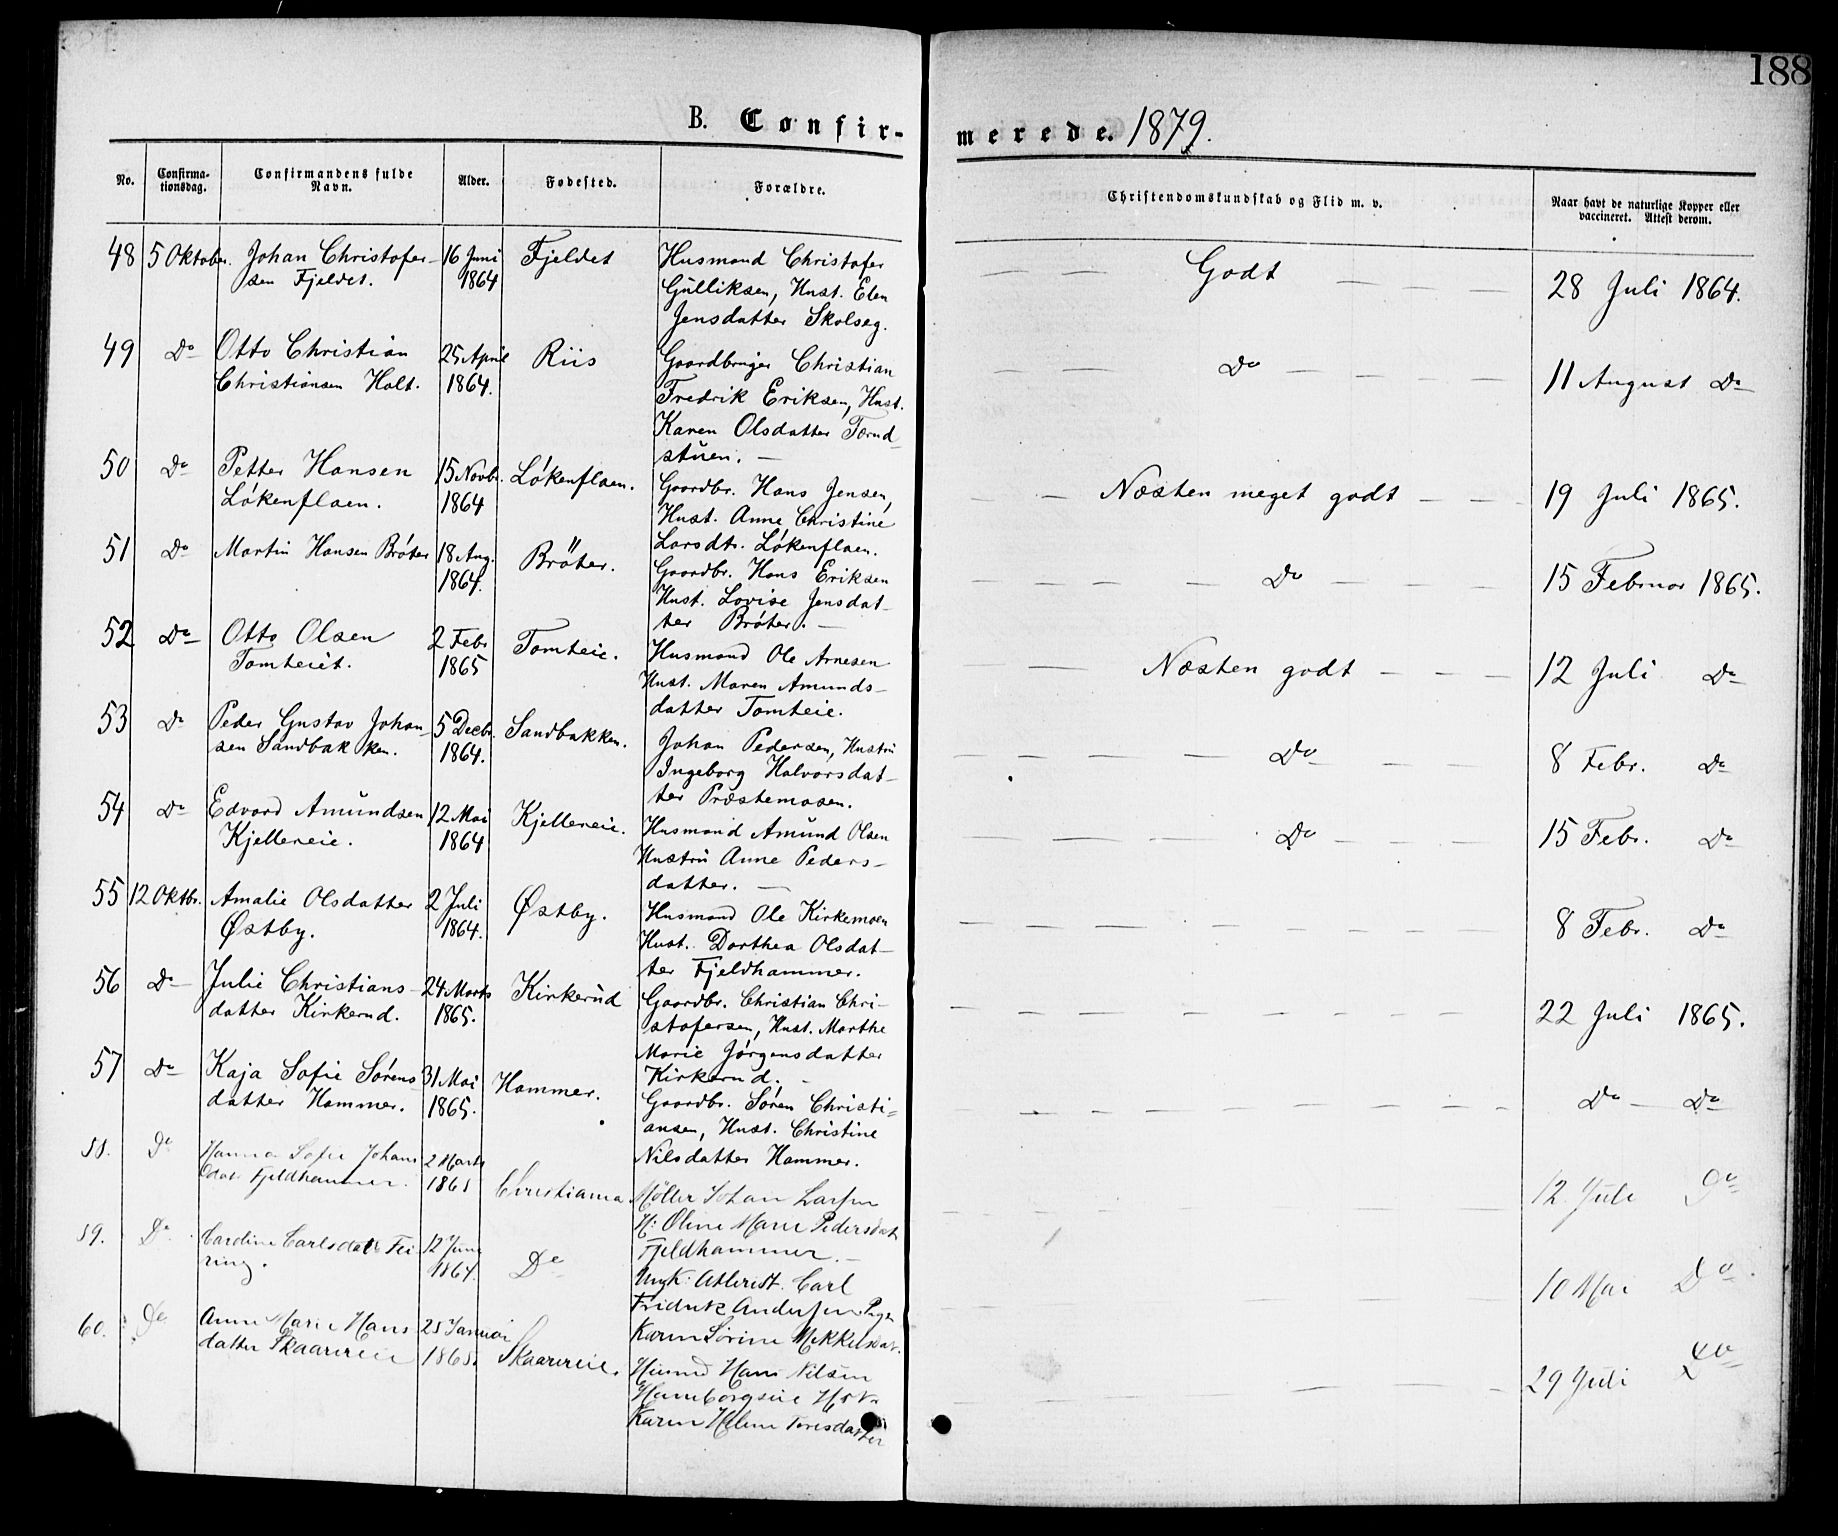 188
B. Confir-
merede. 1879.
No.
Confirma-
tionsdag.
Confirmandens fulde
Navn.
Alder.
Fødested.
Forældre.
Christendomskundskab og Flid m. v.
Naar havt de naturlige Kopper eller
vaccineret. Attest derom.
48 5 Oktober. Johan Christofer- 16 Juni Fjeldet Husmand Christofer
sen Fjeldet. 1864 Gulliksen, Hust. Elen
Jensdatter Skolseg.
Godt 28 Juli 1864.
49 Do Otto Christian 25 April Riis Gaardbruger Christian
Christiansen Holt. 1864. Fredrik Eriksen, Hust.
Karen Olsdatter Torud-
stuen.
Do 11 August Do
50 Do Petter Hansen 15 Novbr. Løkenflaen. Gaardbr. Hans Jensen,
Løkenflaen. 1864 Hust. Anne Christine
Larsdtr. Løkenflaen.
Næsten meget godt 19 Juli 1865.
51 Do Martin Hansen Brøter 18 Aug. Brøter. Gaardbr. Hans Eriksen
1864. Hust. Lovise Jensdat-
ter Brøter.
Do 15 Februar 1865.
52 Do Otto Olsen 2 Febr Tomteie. Husmand Ole Arnesen
Tomteiet. 1865 Hust. Maren Amunds-
datter Tomteie.
Næsten godt 12 Juli Do
53 Do Peder Gustav Johan- 5 Decbr. Sandbakken. Johan Pedersen, Hustru
sen Sandbakken. 1864. Ingeborg Halvorsdat-
ter Præstemosen.
Do 8 Febr. Do
54 Do Edvard Amundsen 12 Mai Kjellereie. Husmand Amund Olsen
Kjellereie. 1864 Hustru Anne Peders-
datter.
Do 15 Febr. Do
55 12 Oktbr. Amalie Olsdatter 2 Juli Østby. Husmand Ole Kirkemoen
Østby. 1864. Hust. Dorthea Olsdat-
ter Fjeldhammer.
8 Febr. Do
56 Do Julie Christians- 24 Marts Kirkerud Gaardbr. Christian Chri-
datter Kirkerud. 1865. stofersen, Hust. Marthe
Marie Jørgensdatter
Kirkerud.
22 Juli 1865.
57 Do Kaja Sofie Sørens- 31 Mai Hammer. Gaardbr. Søren Christi-
datter Hammer. 1865. ansen, Hust. Christine
Nilsdatter Hammer.
Do Do
58. Do Hanna Sofie Johans 2 Marts Christiania. Møller Johan Larsen
dat. Fjeldhammer. 1865 H: Oline Marie Pedersdat
Fjeldhammer.
12. Juli Do
59. Do Caroline Carlsdatt. Fei- 12 Juni Do Ungk: Carl
ring. 1864. Fridrik Andersen Pige
Karen Sørine Mikkelsdat.
10 Mai Do
60. Do Anne Marie Hans 25 Januar Skaarereie. Husmd Hans Nilsen
datter Skaarereie 1865. Hamborgeie
Karen Helene
29 Juli Do